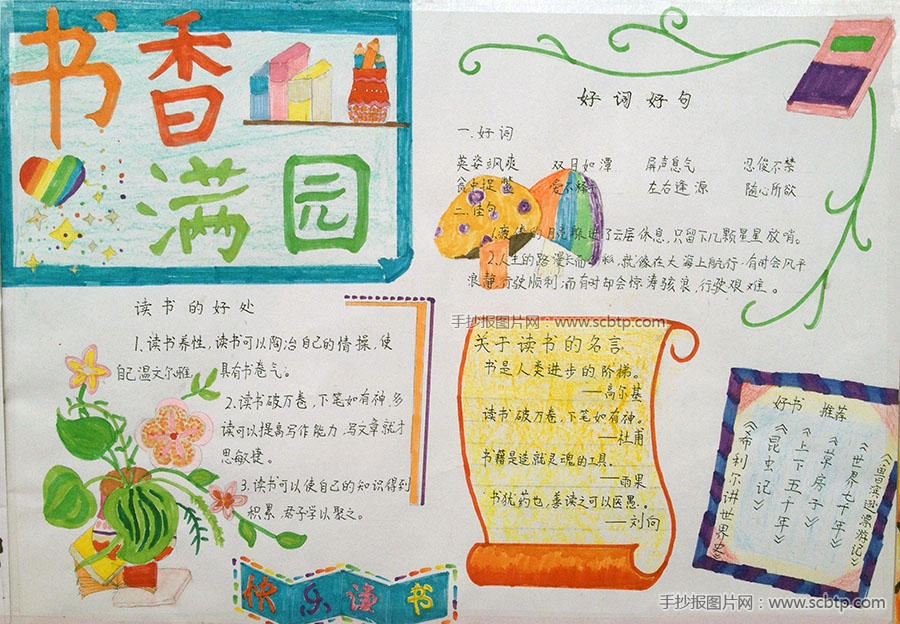 书香
满园
好词好句
一.好词
英姿飒爽 双目如潭 屏声息气 忍俊不禁
爱不释手 左右逢源 随心所欲
二.佳句
1.疲倦的月亮躲进了云层休息,只留下几颗星星放哨。
2.人生的路漫长而多彩,就像在大海上航行,有时会风平
浪静,行驶顺利;而有时却会惊涛骇浪,行驶艰难。
读书的好处
1.读书养性,读书可以陶冶自己的情操,使
自己温文尔雅,具有书卷气。
2.读书破万卷,下笔如有神,多
读可以提高写作能力,写文章就才
思敏捷。
3.读书可以使自己的知识得到
积累,君子学以聚之。
快乐读书
手抄报图片网:www.scbtp.com
关于读书的名言
书是人类进步的阶梯。
——高尔基
读书破万卷,下笔如有神。
——杜甫
书籍是造就灵魂的工具。
——雨果
书犹药也,善读之可以医愚。
——刘向
好书 推荐
《鲁滨逊漂游记》
《世界七千年》
《草房子》
《上下五千年》
《昆虫记》
《希利尔讲世界史》
手抄报图片网:www.scbtp.com